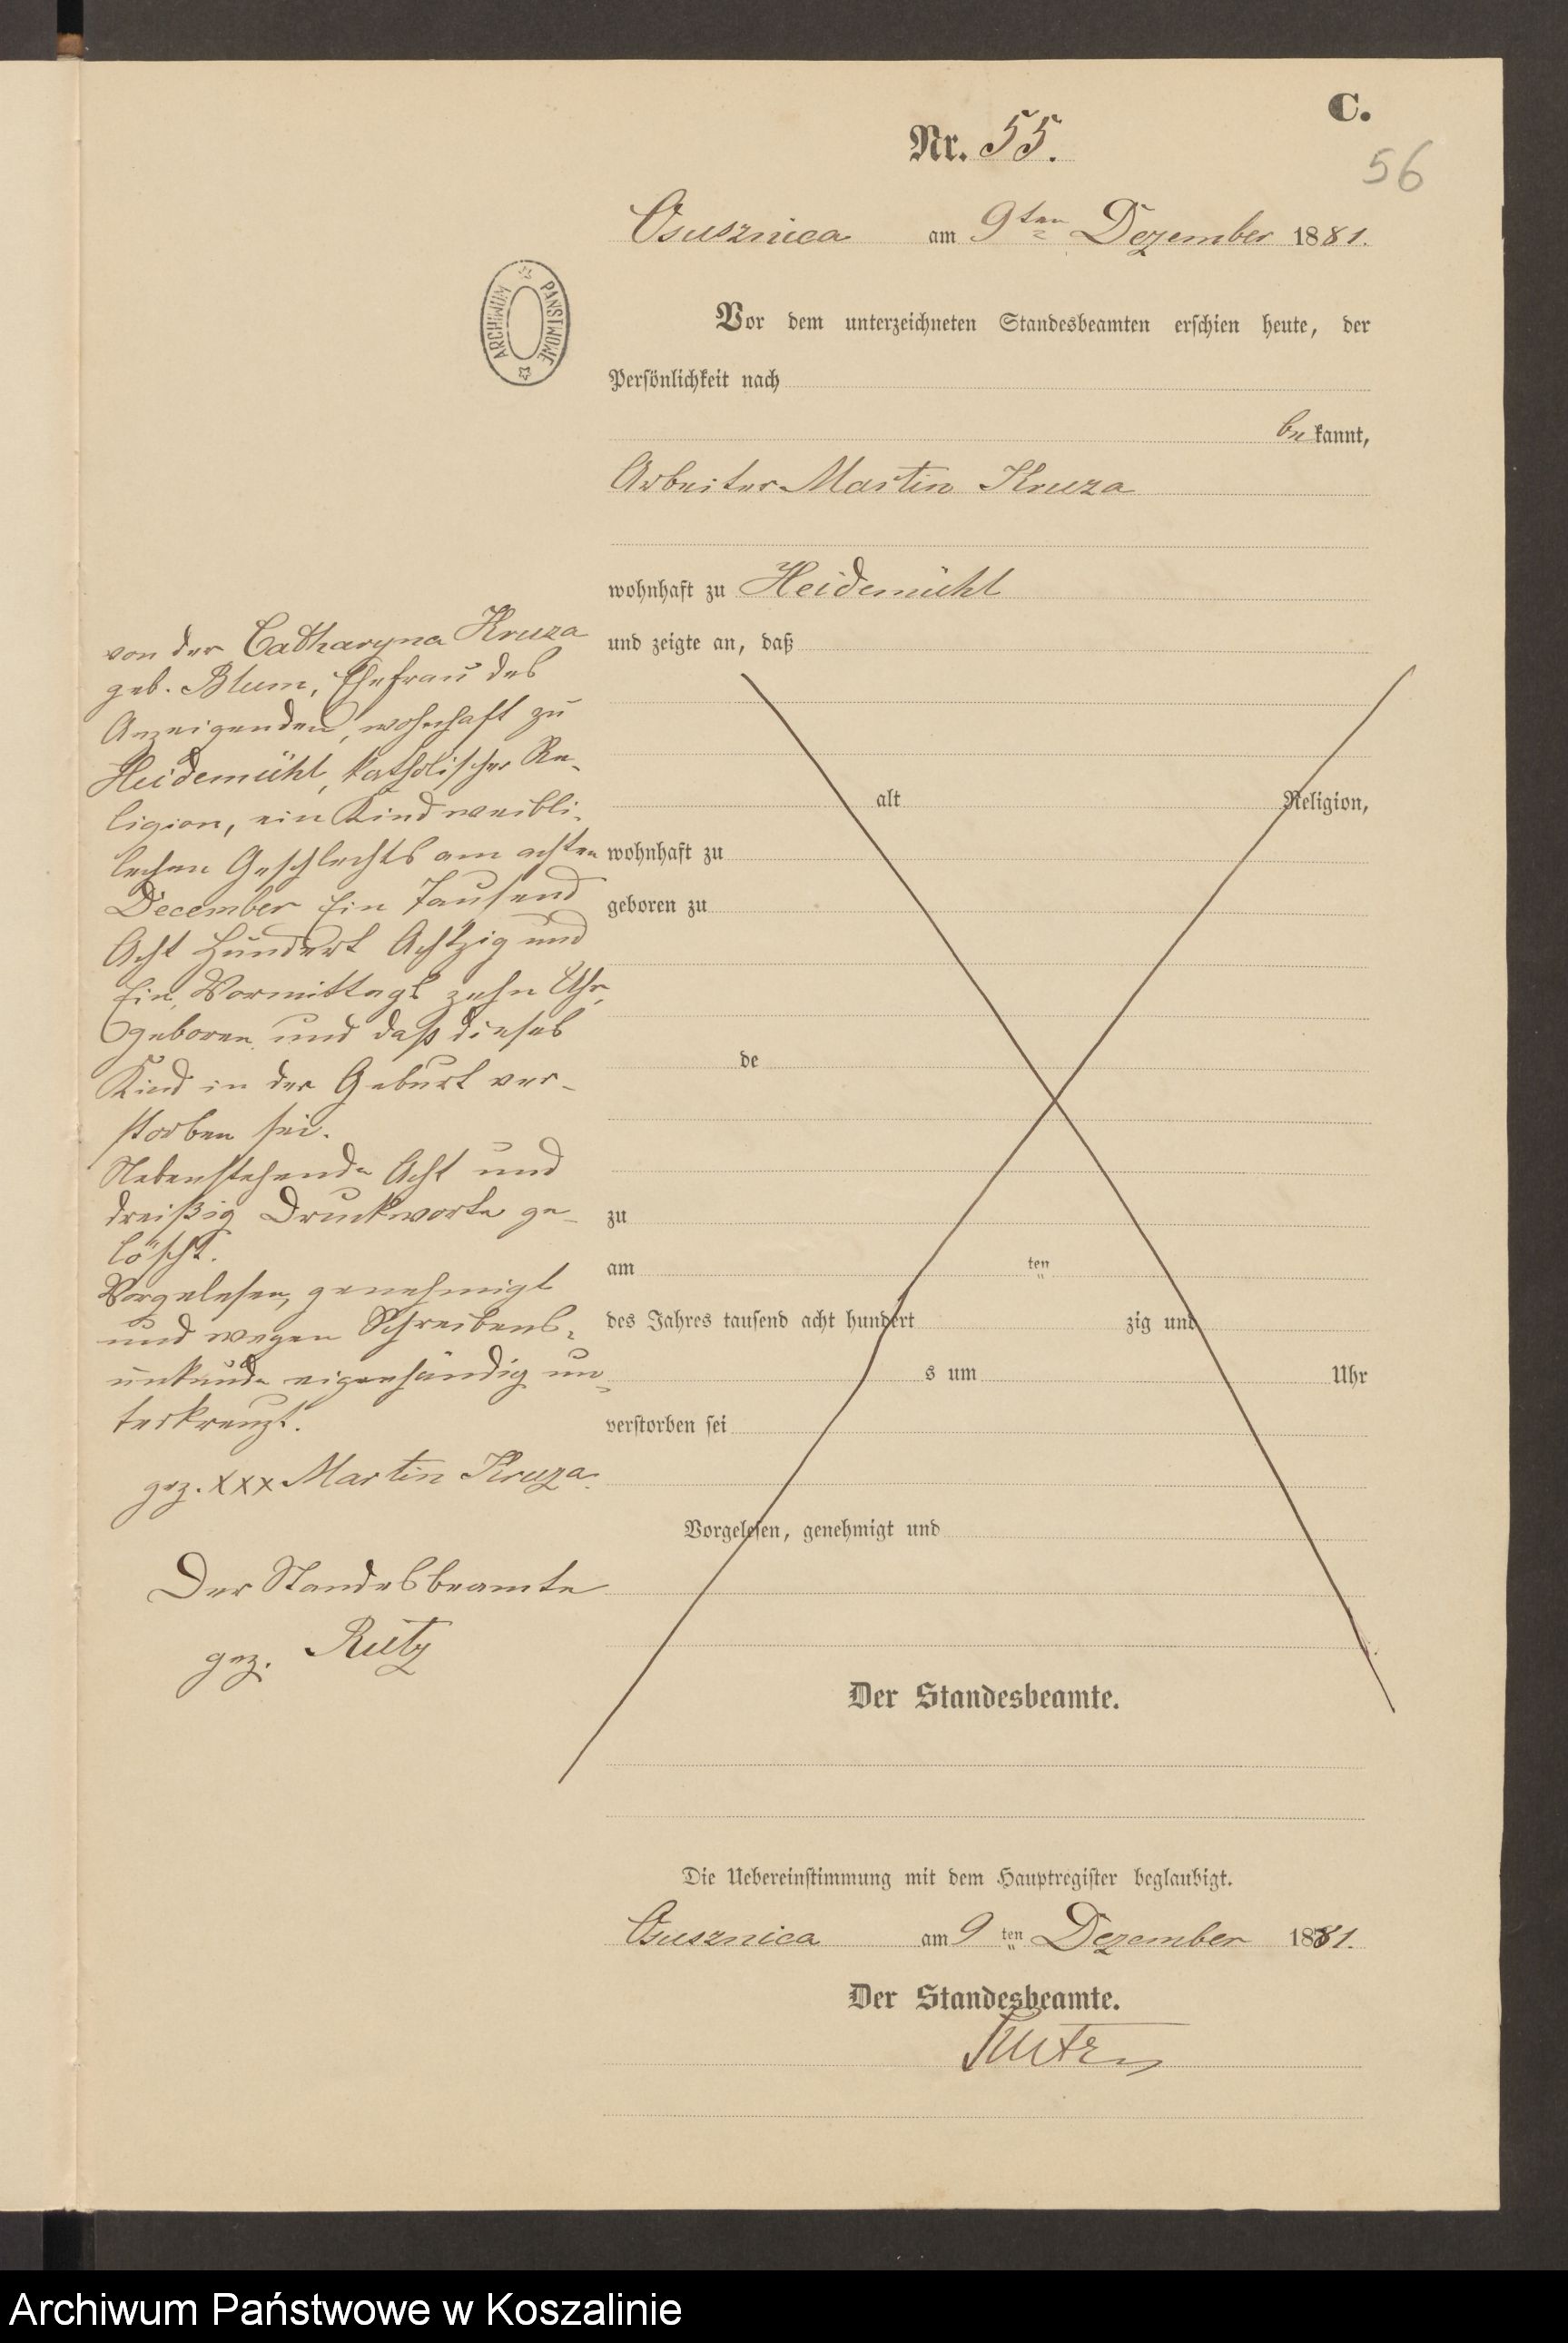 C.
Nr. 55.
56
Osusznica am 9ten Dezember 1881.
ARCHIWUM PAŃSTWOWE
Vor dem unterzeichneten Standesbeamten erschien heute, der
Persönlichkeit nach
bekannt,
Arbeiter Martin Kruza
wohnhaft zu Heidemühl
und zeigte an, daß
von der Catharyna Kruza
geb. Blum, Ehefrau des
Anzeigenden, wohnhaft zu
Heidemühl, katholischer Re-
ligion, ein Kind weibli-
lichen Geschlechts am achten
December Ein Tausend
Acht Hundert Achtzig und
Ein, Vormittags zehn Uhr,
geboren und daß dieses
Kind in der Geburt ver-
storben sei.
Nebenstehende Acht und
dreißig Druckworte ge-
löscht.
Vorgelesen, genehmigt
und wegen Schreibens-
unkunde eigenhändig un-
terkreuzt.
gez. xxx Martin Kruza.
Der Standesbeamte
gez. Rutz
alt Religion,
wohnhaft zu
geboren zu
de
zu
am ten
des Jahres tausend acht hundert zig und
s um Uhr
verstorben sei
Vorgelesen, genehmigt und
Der Standesbeamte.
Die Uebereinstimmung mit dem Hauptregister beglaubigt.
Osusznica am 9 ten Dezember 1881.
Der Standesbeamte.
Rutz
Archiwum Państwowe w Koszalinie